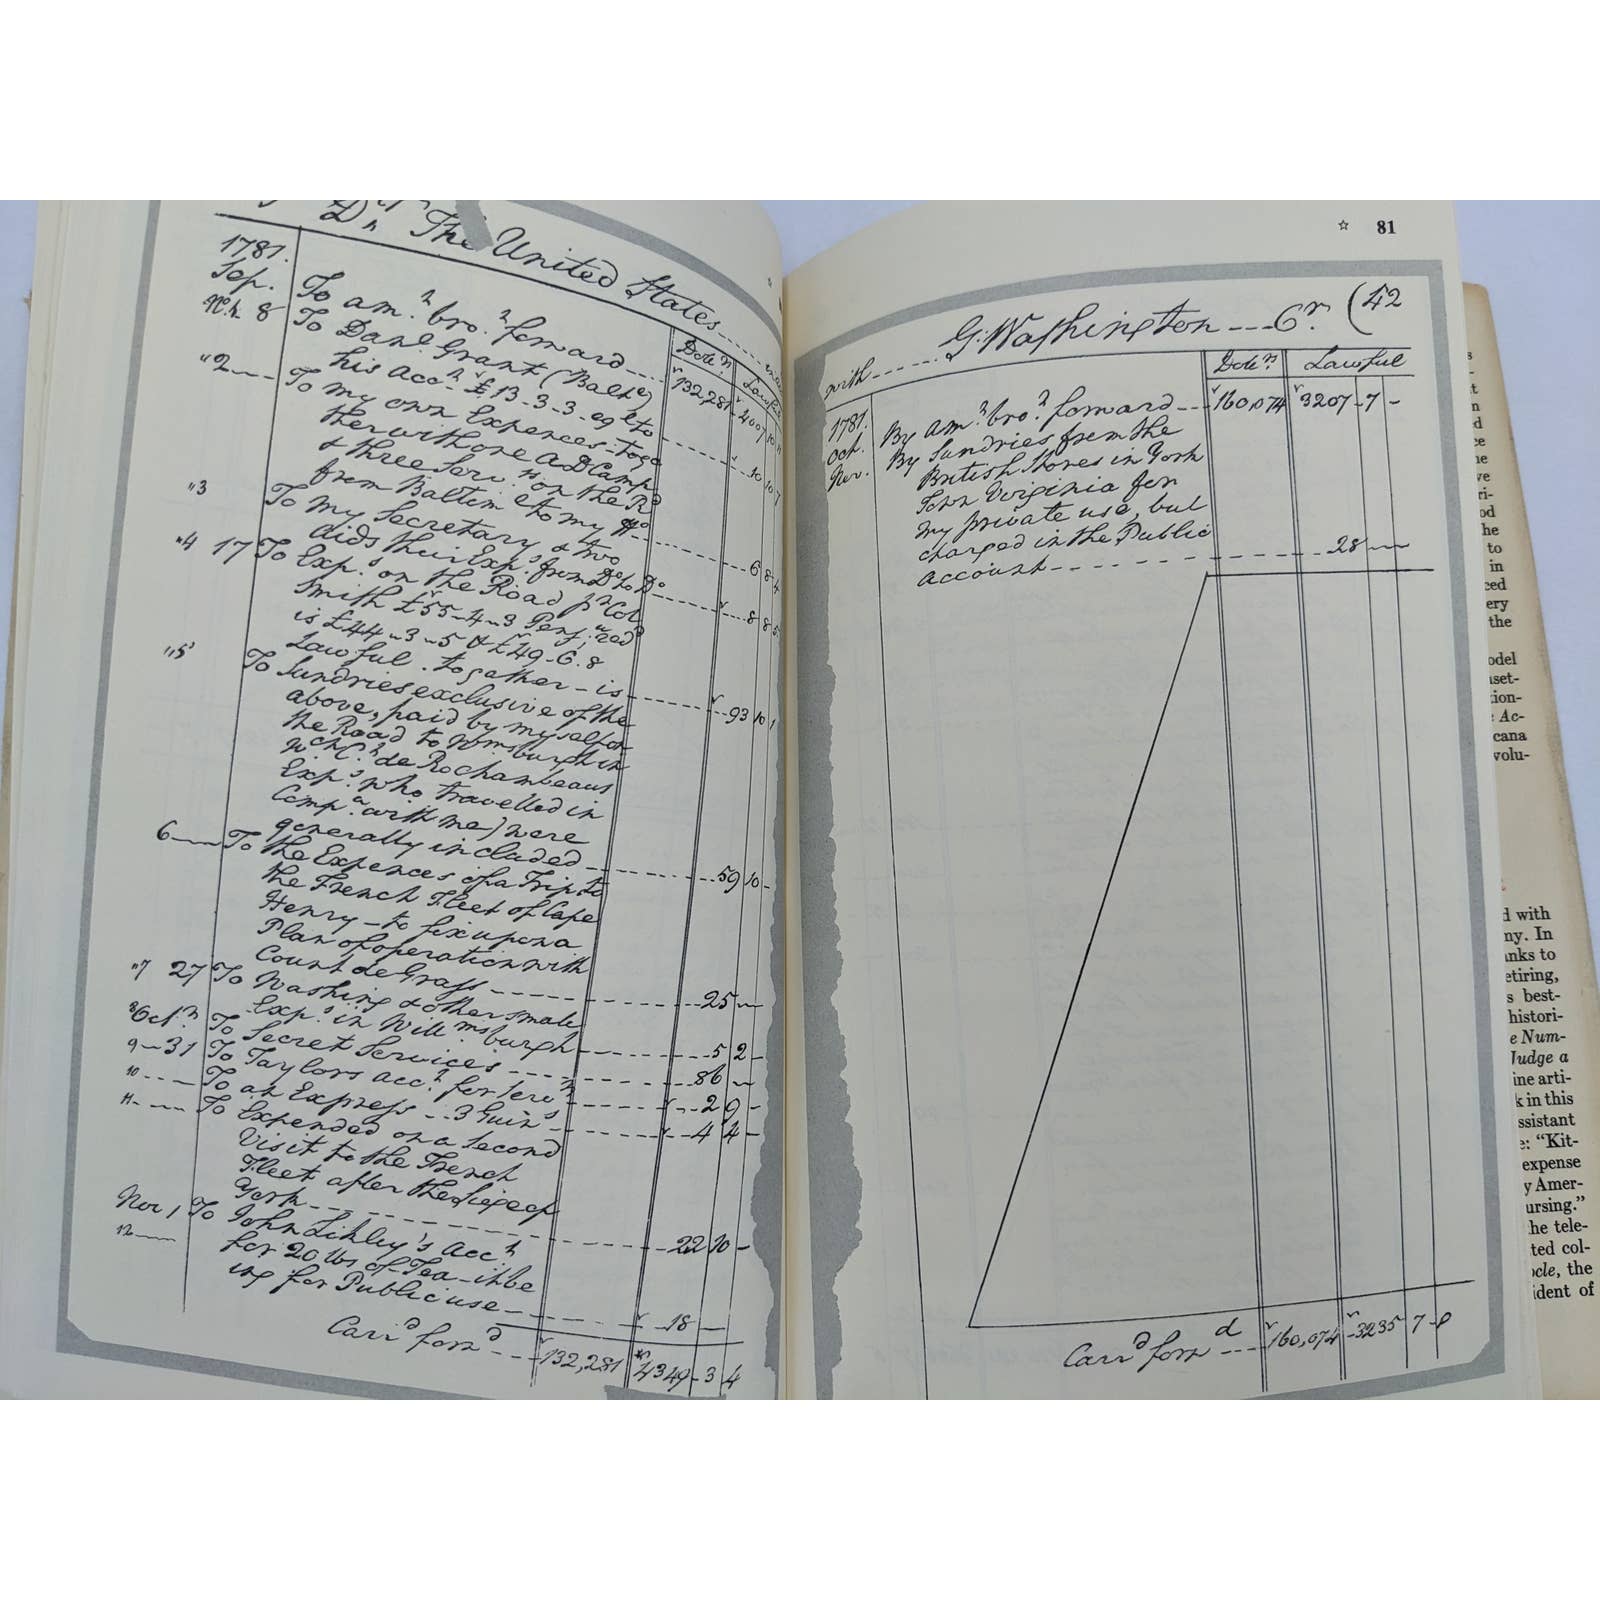 Dr The United States
1781.
Sep. To amt brot forward
Dolrs Lawful
132,281 4007 10
No. 1 8 To Danl Grant (Balte)
his acct £13-3-3 eql to 10 10 7
"2 To my own Expences toge
ther with one A D Camp
& three Servts on the Rd
from Baltim e to my Ho 6 8 4
"3 To my Secretary & two
aids their Exps from Do to Do 8 8 5
"4 17 To Exps on the Road pr Col
Smith £55-4-3
is £44-3-5 & £49-6.8
Lawful . together - is 93 10 1
"5 To Sundries exclusive of the
above, paid by myself on
the Road to Wmsburgh in
wch Ct de Rochambeaus
Exps who travelled in
Compa with me) were
generally included 59 10 -
6 To the Expences of a Trip to
the French Fleet of Cape
Henry - to fix upon a
Plan of operation with
Count de Grass 25
"7 27 To Washing & other small
Exps in Willmsburgh 5 2 -
8 Octr To Secret Services 86
9 - 31 To Taylors acct for 2 9 -
10 To an Express 3 Guins 4 4 -
11 To Expended on a Second
Visit to the French
Fleet after the Siege of
York 22 10 -
Nov 1 To John Likley's acct
12 for 20 lbs of Tea - it be
ing for Public use 18
Carrd forwd 132,281 4349 - 3 4
☆ 81
with G. Washington Cr. (42
Dolrs Lawful
1781.
Oct. By amt brot forward 160,074 3207 - 7 -
Nov. By Sundries from the
British Stores in York
Town Virginia for
my private use, but
charged in the Public
account 28
Carrd forwd 160,074 3235 7 -
odel
Ac-
cana
volu-
d with
ny. In
nks to
etiring,
s best-
histori-
e Num-
Judge a
ine arti-
k in this
ssistant
e: "Kit-
expense
y Amer-
ursing."
the tele-
ted col-
ocle, the
ident of